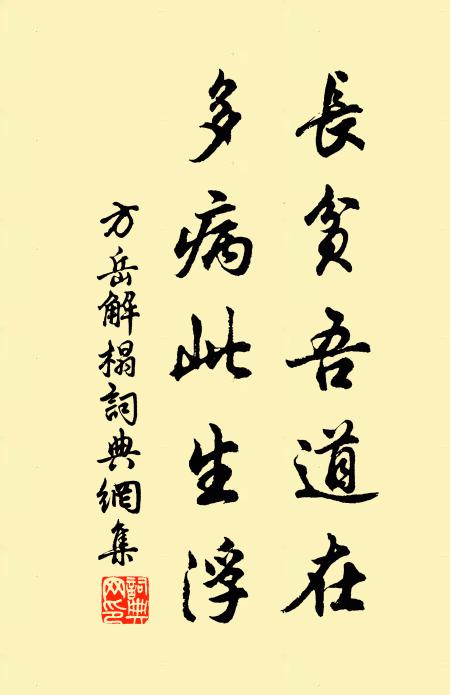 長貧吾道在
多病此生浮
方岳解榻詞典網集
詞典
网印